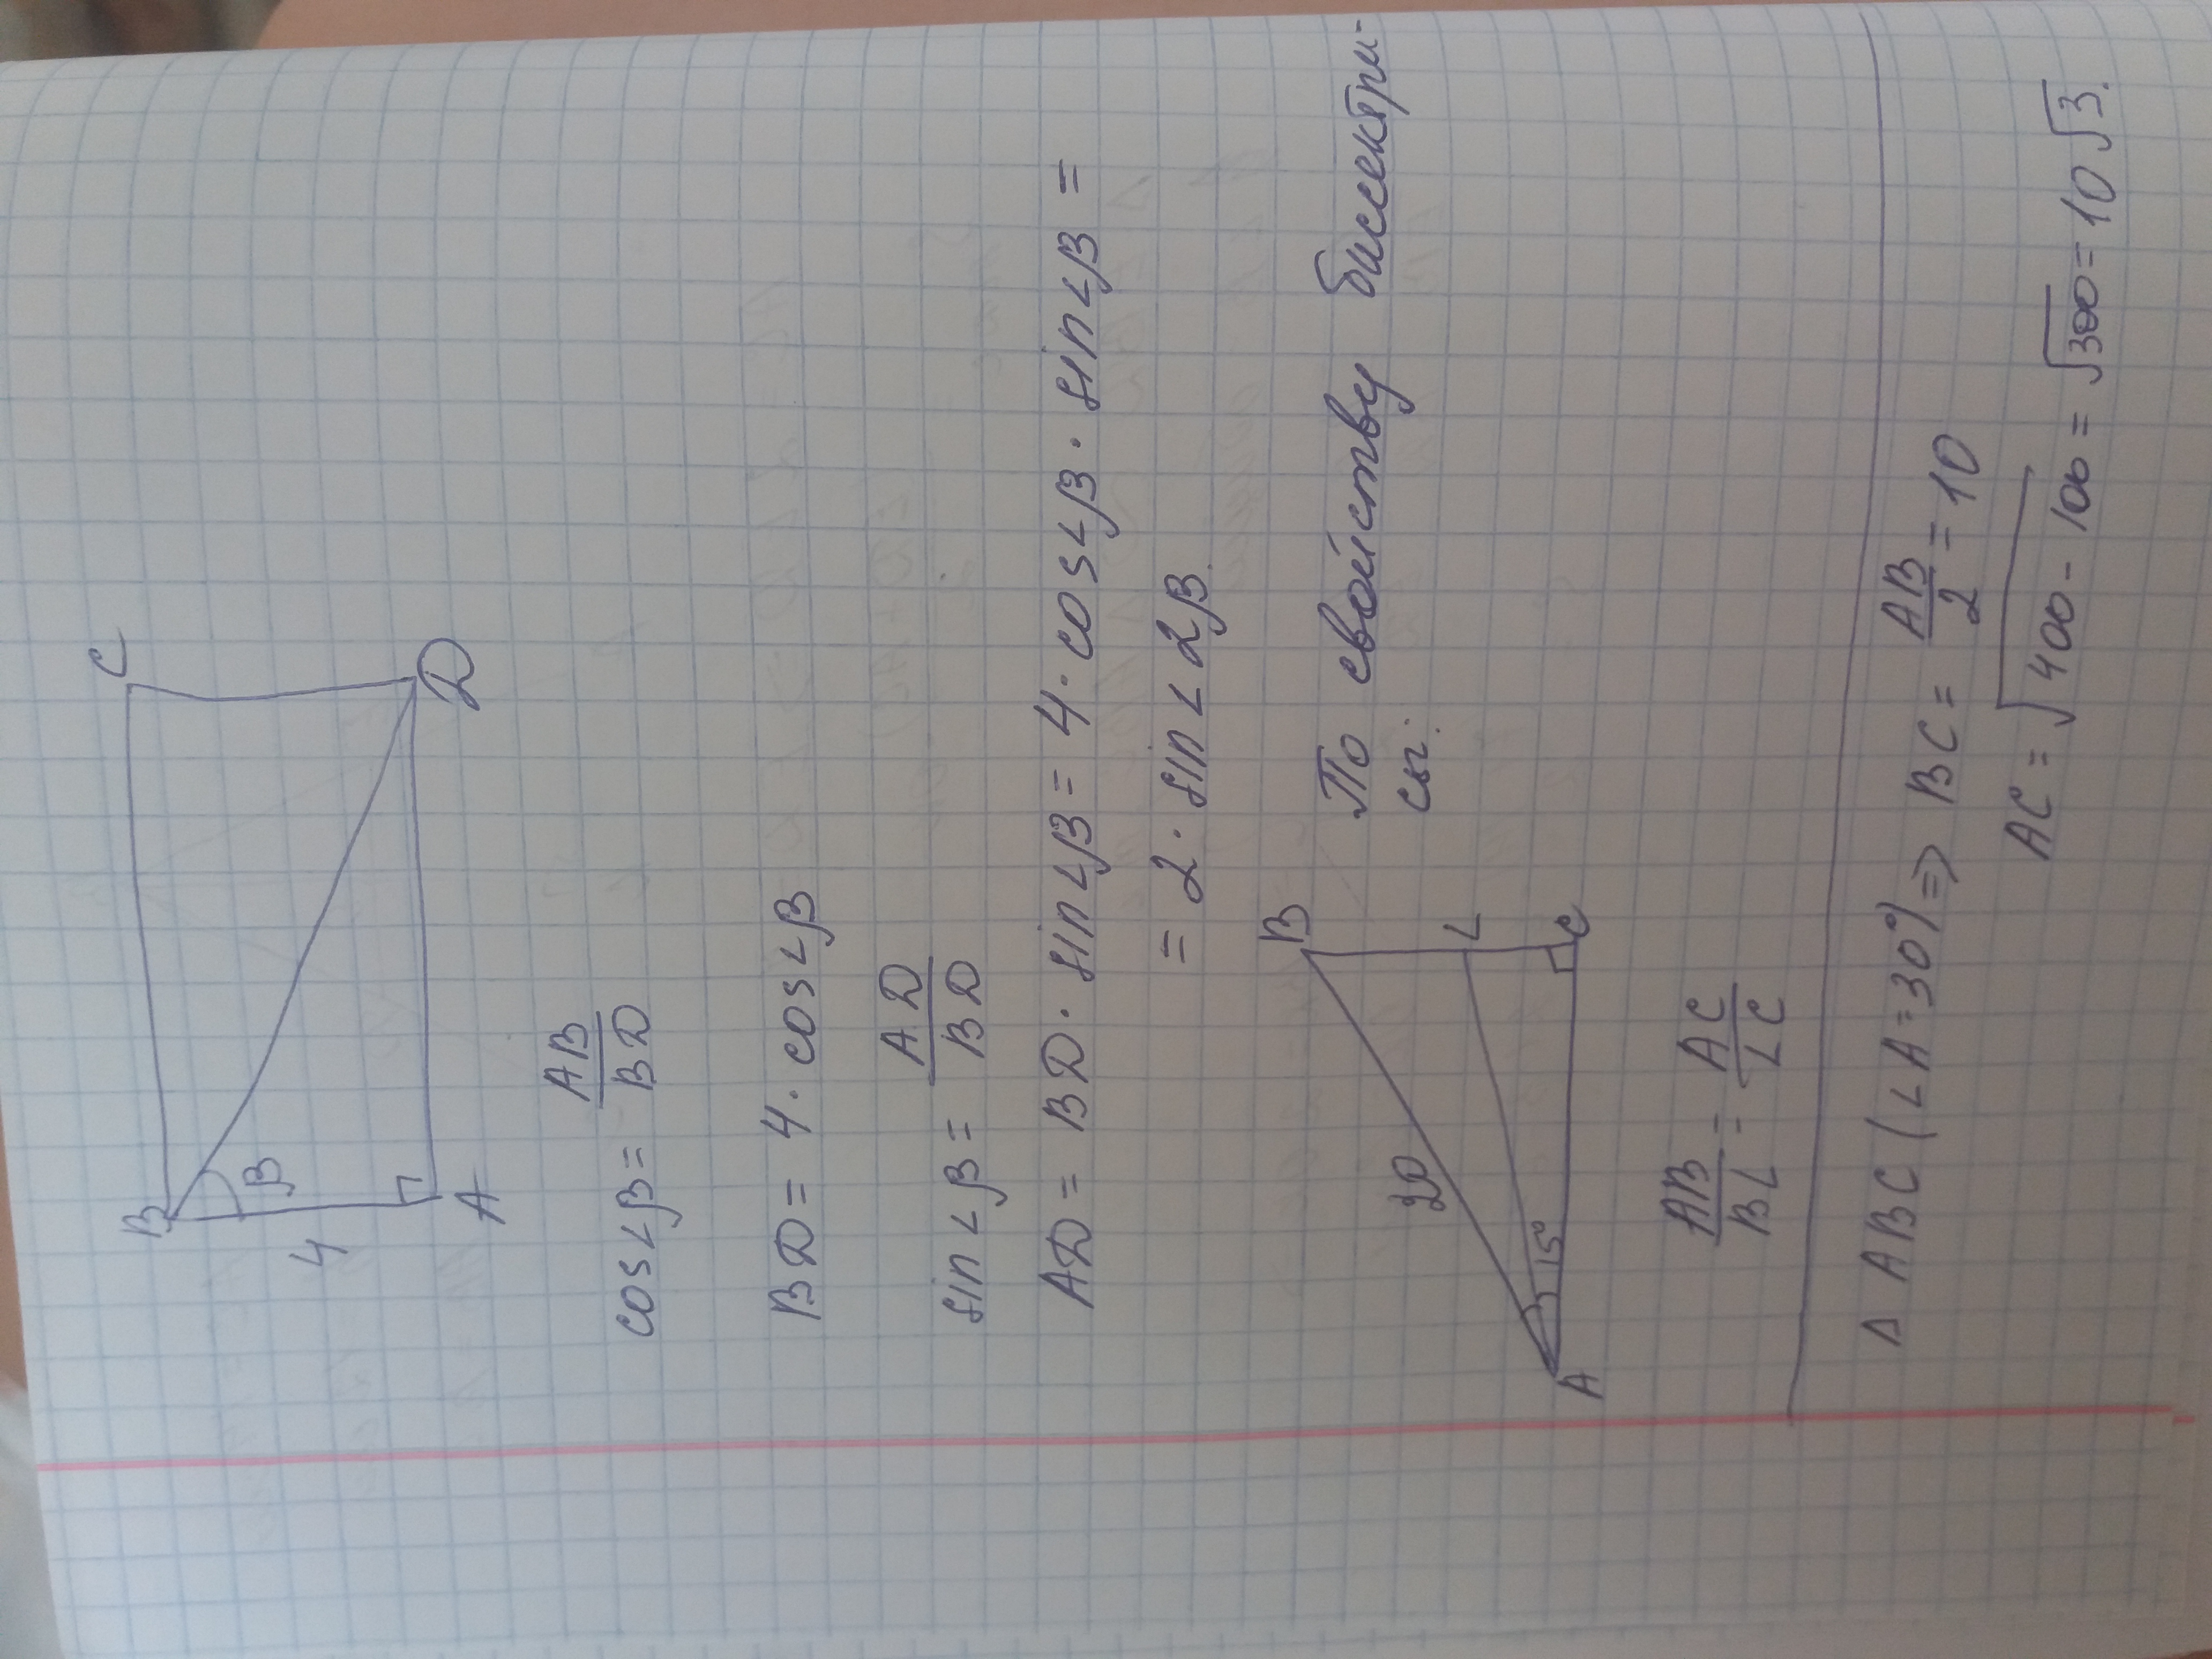 B C
4 β
A D
cos∠β = AB/BD
BD = 4 · cos∠β
sin∠β = AD/BD
AD = BD · sin∠β = 4 · cos∠β · sin∠β =
= 2 · sin∠2β.
B
20
L
15°
A C
По свойству биссектри-
сы:
AB/BL = AC/LC
Δ ABC (∠A=30°) => BC = AB/2 = 10
AC = √400-100 = √300 = 10√3.